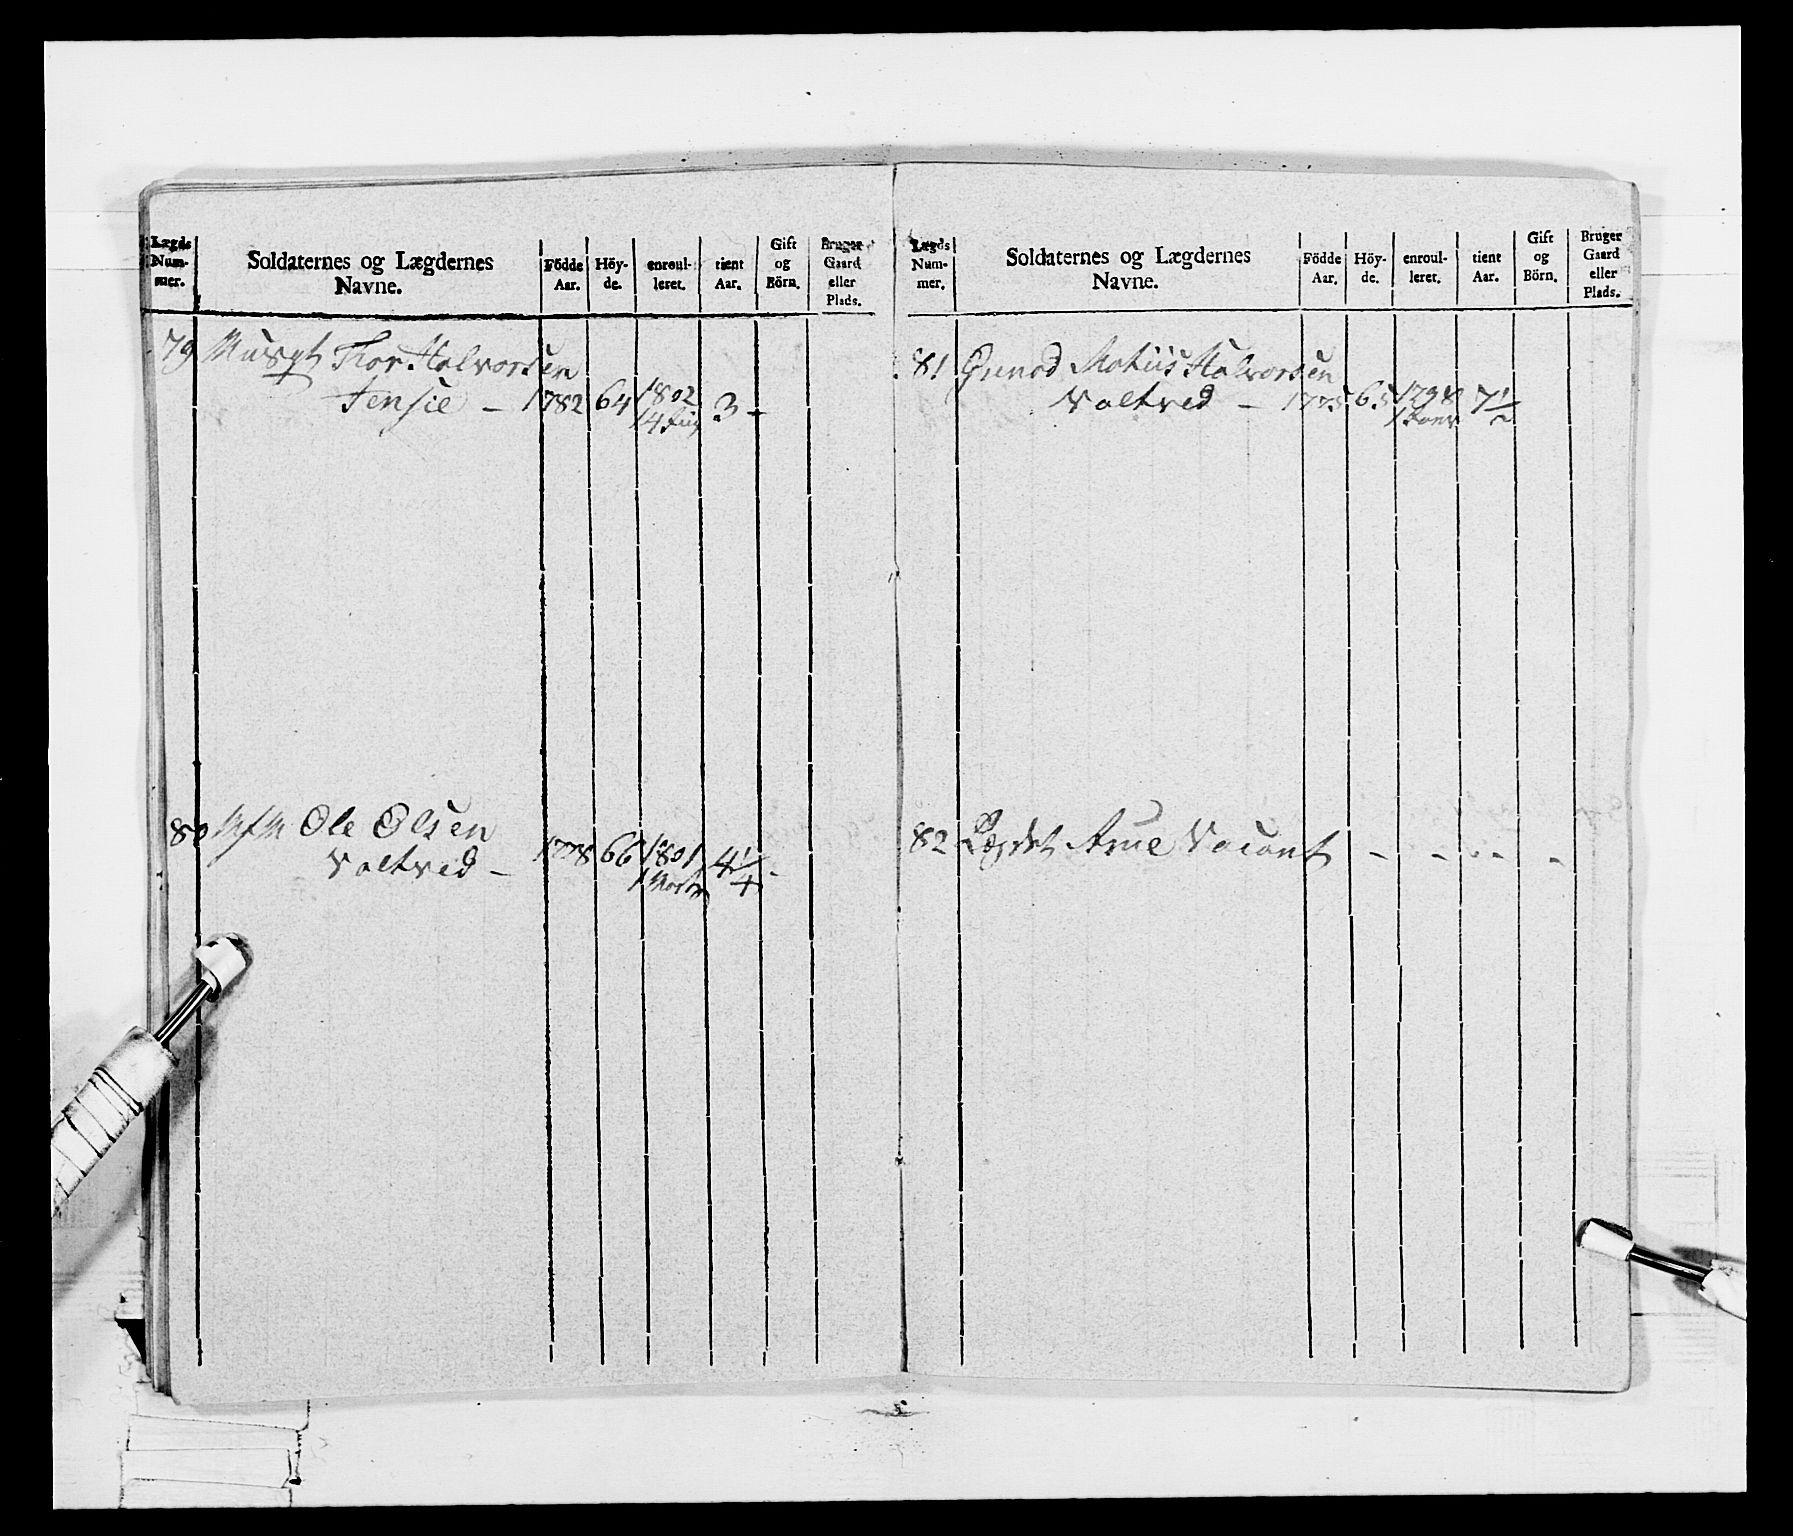 Lægds Num- mer. Soldaternes og Lægdernes Navne. Födde Aar. Höy- de. enroul- leret. tient Aar. Gift og Börn. Bruger Gaard eller Plads.
79 Musqt Thor Halvorsen
Jensie – 1782 64 1802 3 –
14 Juny
80 Ole Olsen
Valtved – 1778 66 1801 4 1/4 –
1 Martz
Lægds Num- mer. Soldaternes og Lægdernes Navne. Födde Aar. Höy- de. enroul- leret. tient Aar. Gift og Börn. Bruger Gaard eller Plads.
81 Halvorsen
Valtved – 1775 65 1798 7 1/2
1
82 Lægdet Arue Vacant – – – – –